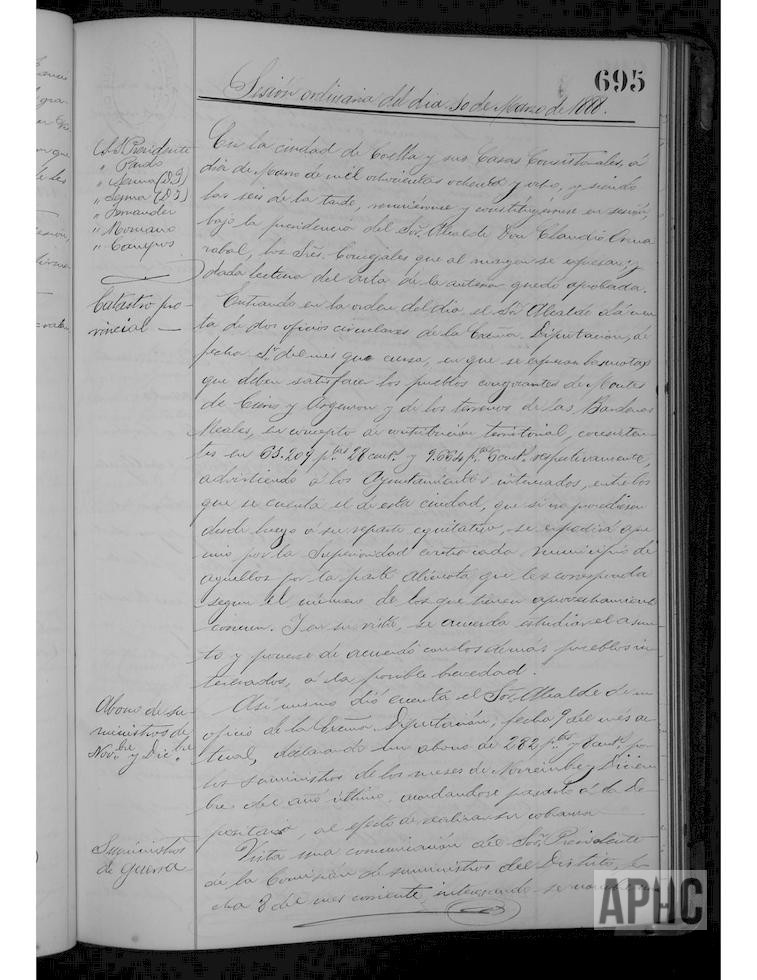 695
Sesión ordinaria del dia 10 de Marzo de 1888.
Sr. Presidente
" Pardo
" Serma (D. J)
" Serma (D. J)
" Fernandez
" Romano
" Campos
En la ciudad de Corella y sus Casas Consistoriales, á
dia de Marzo de mil ochocientos ochenta y ocho, y siendo
las seis de la tarde, reunieronse y constituyéronse en sesión,
bajo la presidencia del Sor. Alcalde Don Claudio
los Sres. Concejales que al margen se espresan, y
dada lectura del acta de la anterior quedó aprobada.
Catastro pro-
vincial —
Entrando en la orden del dia, el Sor. Alcalde dá cuen-
ta de dos oficios circulares de la Excma. Diputacion, de
fecha 1º del mes que cursa, en que se espresan las cuotas
que deben satisfacer los pueblos congozantes de Montes
de Cierzo y Argenzon y de los terrenos de las Bardenas
Reales, en concepto de contribución territorial, consisten-
tes en 63.207 ptas 28 cents. y 9.664 ptas 6 cents. respectivamente,
advirtiendo á los Ayuntamientos interesados, entre los
que se cuenta el de esta ciudad, que si no procediesen
desde luego á su reparto equitativo, se espediría apre-
mio por la Superioridad contra cada municipio de
aquellos por la parte alicuota que les corresponda
segun el número de los que tienen aprovechamiento
comun. Y en su vista, se acuerda estudiar el asun-
to y ponerse de acuerdo con los demás pueblos in-
teresados, á la posible brevedad.
Abono de su-
ministros de
Novbre y Dicbre
Asi mismo dió cuenta el Sor. Alcalde de un
oficio de la Excma. Diputación, fecha 9 del mes ac-
tual, declarando un abono de 282 ptas y 8 cents. por
los suministros de los meses de Noviembre y Diciem-
bre del año último, acordandose pasarlo á la De-
positaria, al efecto de realizar su cobranza
Suministros
de guerra
Vista una comunicación del Sor. Presidente
de la Comisión de suministros del Distrito, fe-
cha 8 del mes corriente, interesando se
APHC